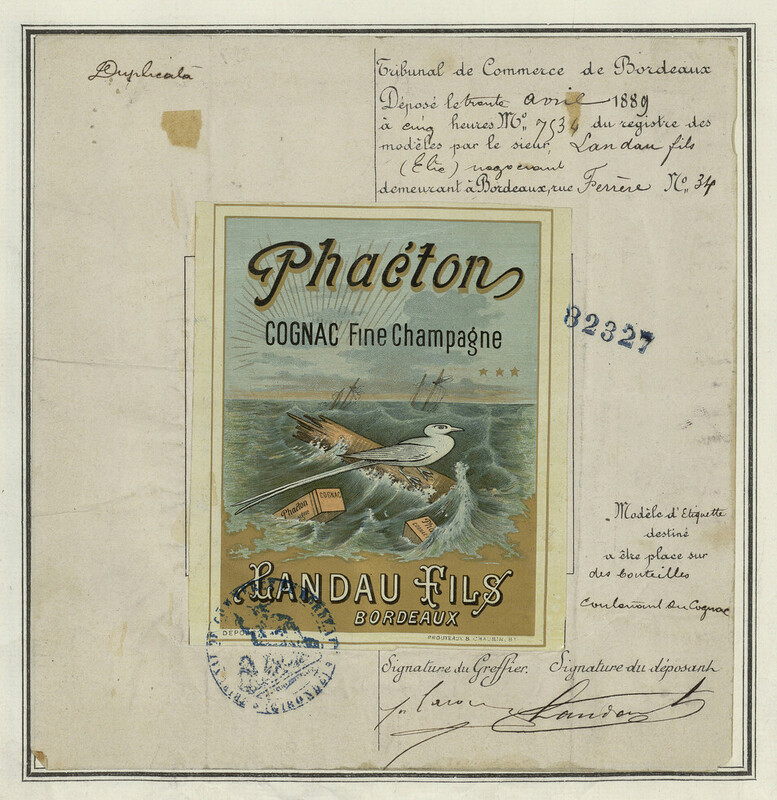 Duplicata
Tribunal de Commerce de Bordeaux
Déposé le trente avril 1889
à cinq heures No. 7534 du registre des
modèles par le sieur, Landau fils
(Elie) negociant
demeurant à Bordeaux, rue Ferrère No. 34
Phaéton
COGNAC Fine Champagne
82327
Phaéton
COGNAC
COGNAC
Modèle d'Etiquette
destiné
a être place sur
des bouteilles
contenant du Cognac
LANDAU FILS
BORDEAUX
DEPO
Signature du Greffier. Signature du déposant
Landau